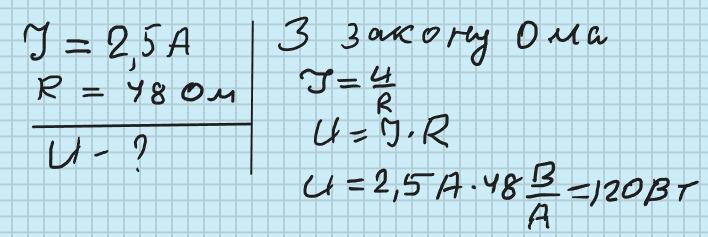 I = 2,5 А
R = 48 Ом
U - ?
З закону Ома
I = U/R
U = I · R
U = 2,5 А · 48 В/А = 120 Вт